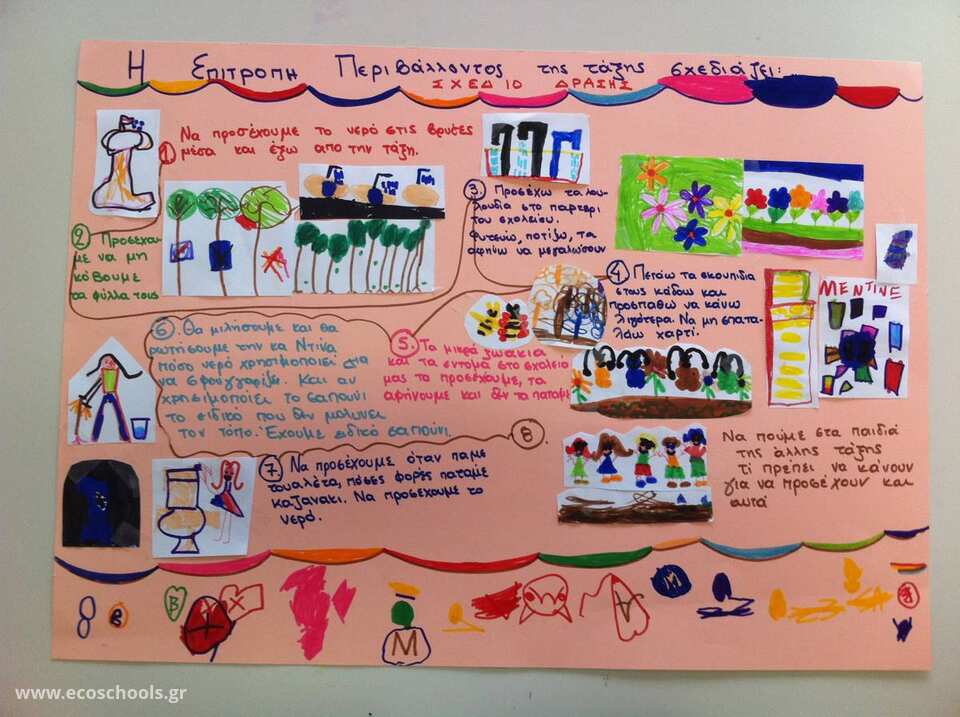 Η Επιτροπή Περιβάλλοντος της τάξης σχεδιάζει:
ΣΧΕΔΙΟ ΔΡΑΣΗΣ
1 Να προσέχουμε το νερό στις βρύσες
μέσα και έξω από την τάξη.
2 Προσέχου-
με να μη
κόβουμε
τα φύλλα τους
3. Προσέχω τα λου-
λούδια στο παρτέρι
του σχολείου.
Φυτεύω, ποτίζω, τα
αφήνω να μεγαλώσουν
4 Πετάω τα σκουπίδια
στους κάδους και
προσπαθώ να κάνω
λιγότερα. Να μη σπατα-
λάω χαρτί.
MENTINE
5. Τα μικρά ζωάκια
και τα έντομα στο σχολείο
μας τα προσέχουμε, τα
αφήνουμε και δεν τα πατάμε
6. Θα μιλήσουμε και θα
ρωτήσουμε την κα Ντίνα
πόσο νερό χρησιμοποιεί για
να σφουγγαρίζει. Και αν
χρησιμοποιεί το σαπούνι
το ειδικό που δεν μολύνει
τον τόπο. Έχουμε ειδικό σαπούνι.
7. Να προσέχουμε όταν πάμε
τουαλέτα, πόσες φορές πατάμε
καζανάκι. Να προσέχουμε το
νερό.
8.
Να πούμε στα παιδιά
της άλλης τάξης
τι πρέπει να κάνουν
για να προσέχουν και
αυτά
8 B B X X M A M
www.ecoschools.gr